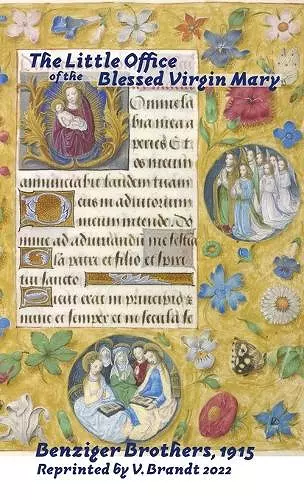 The Little Office
of the Blessed Virgin Mary
omine la
bia mea a
peries Et o
annunciabit laudem tuam
eus in adiutorium
meum intende Do
mine ad adiuvandum me festi
patri et filio et spiri
tui sancto
icut erat in principio et
nunc et semper et in secula se
Benziger Brothers, 1915
Reprinted by V. Brandt 2022